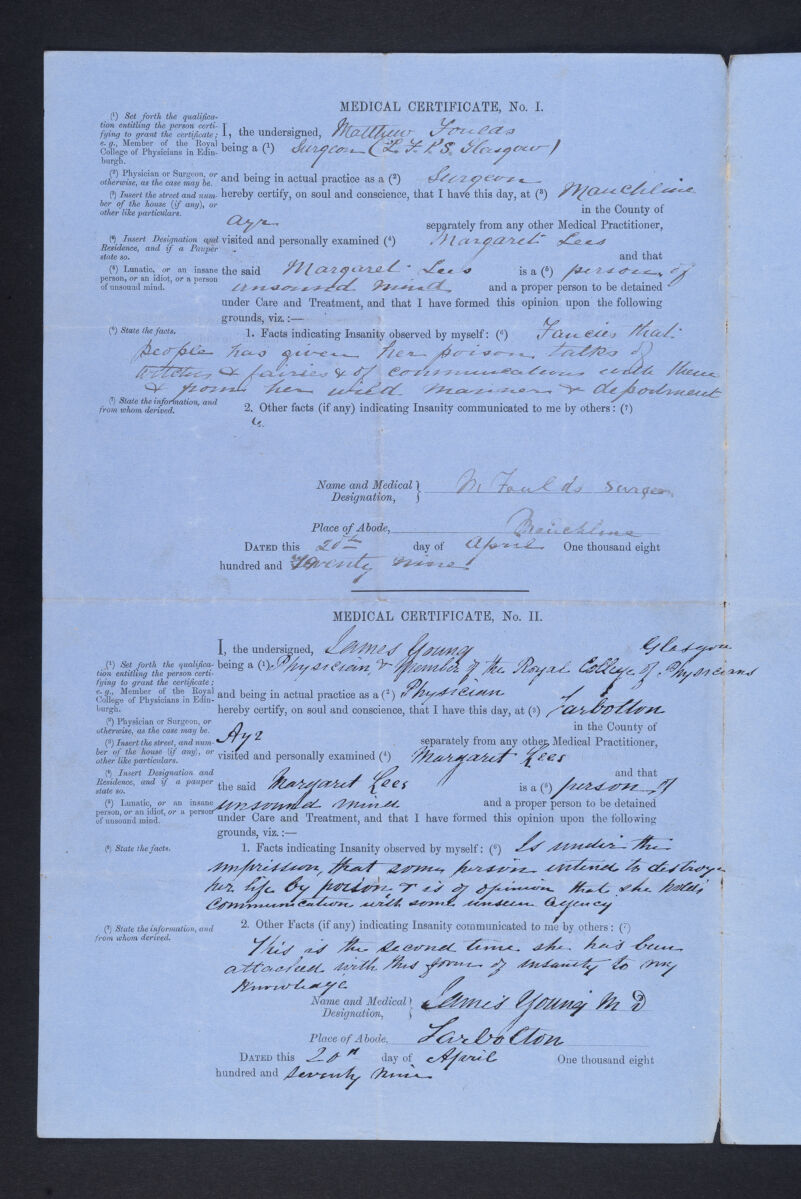 MEDICAL CERTIFICATE, No. I.
(1) Set forth the qualifica-
tion entitling the person certi-
fying to grant the certificate;
e.g., Member of the Royal
College of Physicians in Edin-
burgh.
I, the undersigned, Matthew Foulds
being a (1) Surgeon (L. F. P. S. Glasgow)
(2) Physician or Surgeon, or
otherwise, as the case may be.
and being in actual practice as a (2) Surgeon
(3) Insert the street and num-
ber of the house (if any), or
other like particulars.
hereby certify, on soul and conscience, that I have this day, at (3) Mauchline
in the County of
Ayr separately from any other Medical Practitioner,
(4) Insert Designation and
Residence, and if a Pauper
state so.
visited and personally examined (4) Margaret Lees
and that
(5) Lunatic, or an insane
person, or an idiot, or a person
of unsound mind.
the said Margaret Lees is a (5) person of
unsound mind and a proper person to be detained
under Care and Treatment, and that I have formed this opinion upon the following
grounds, viz.:—
(6) State the facts.
1. Facts indicating Insanity observed by myself: (6) Fancies that
people has given her poison talks of
witches & fairies & of communications with them
& from her wild manner & deportment
(7) State the information, and
from whom derived.
2. Other facts (if any) indicating Insanity communicated to me by others: (7)
Name and Medical } M Foulds Surgeon
Designation,
Place of Abode, Mauchline
DATED this 20th day of April One thousand eight
hundred and seventy nine
MEDICAL CERTIFICATE, No. II.
I, the undersigned, James Young Glasgow
(1) Set forth the qualifica-
tion entitling the person certi-
fying to grant the certificate;
e.g., Member of the Royal
College of Physicians in Edin-
burgh.
being a (1) Physician & Member of the Royal College of Physicians
and being in actual practice as a (2) Physician
(2) Physician or Surgeon, or
otherwise, as the case may be.
hereby certify, on soul and conscience, that I have this day, at (3) Tarbolton
in the County of
(3) Insert the street, and num-
ber of the house (if any), or
other like particulars.
Ayr separately from any other Medical Practitioner,
visited and personally examined (4) Margaret Lees
and that
(4) Insert Designation and
Residence, and if a pauper
state so.
the said Margaret Lees is a (5) person of
(5) Lunatic, or an insane
person, or an idiot, or a person
of unsound mind.
unsound mind and a proper person to be detained
under Care and Treatment, and that I have formed this opinion upon the following
grounds, viz.:—
(6) State the facts.
1. Facts indicating Insanity observed by myself: (6) Is under the
impression, that some person intend to destroy
her life by poison & is of opinion that she holds
communication with some unseen agency
(7) State the information, and
from whom derived.
2. Other Facts (if any) indicating Insanity communicated to me by others: (7)
This is the second time she has been
attacked with this form of insanity to my
Knowledge
Name and Medical } James Young M D
Designation,
Place of Abode, Tarbolton
DATED this 20th day of April One thousand eight
hundred and seventy nine